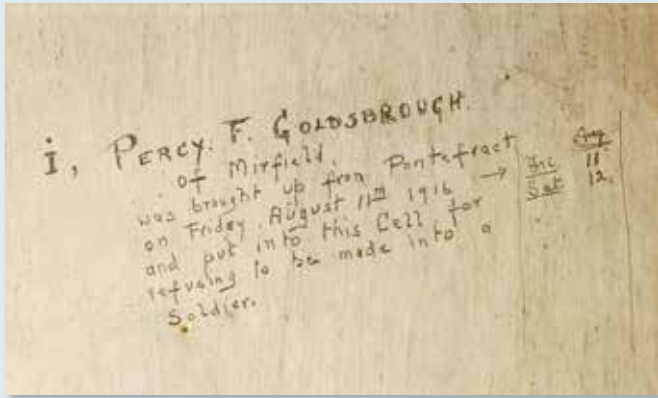 i, PERCY. F. GOLDSBROUGH.
of Mirfield.
was brought up from Pontefract
on Friday, August 11th 1916 →
and put into this Cell for
refusing to be made into a
Soldier.
Aug
Fri. 11.
Sat. 12.